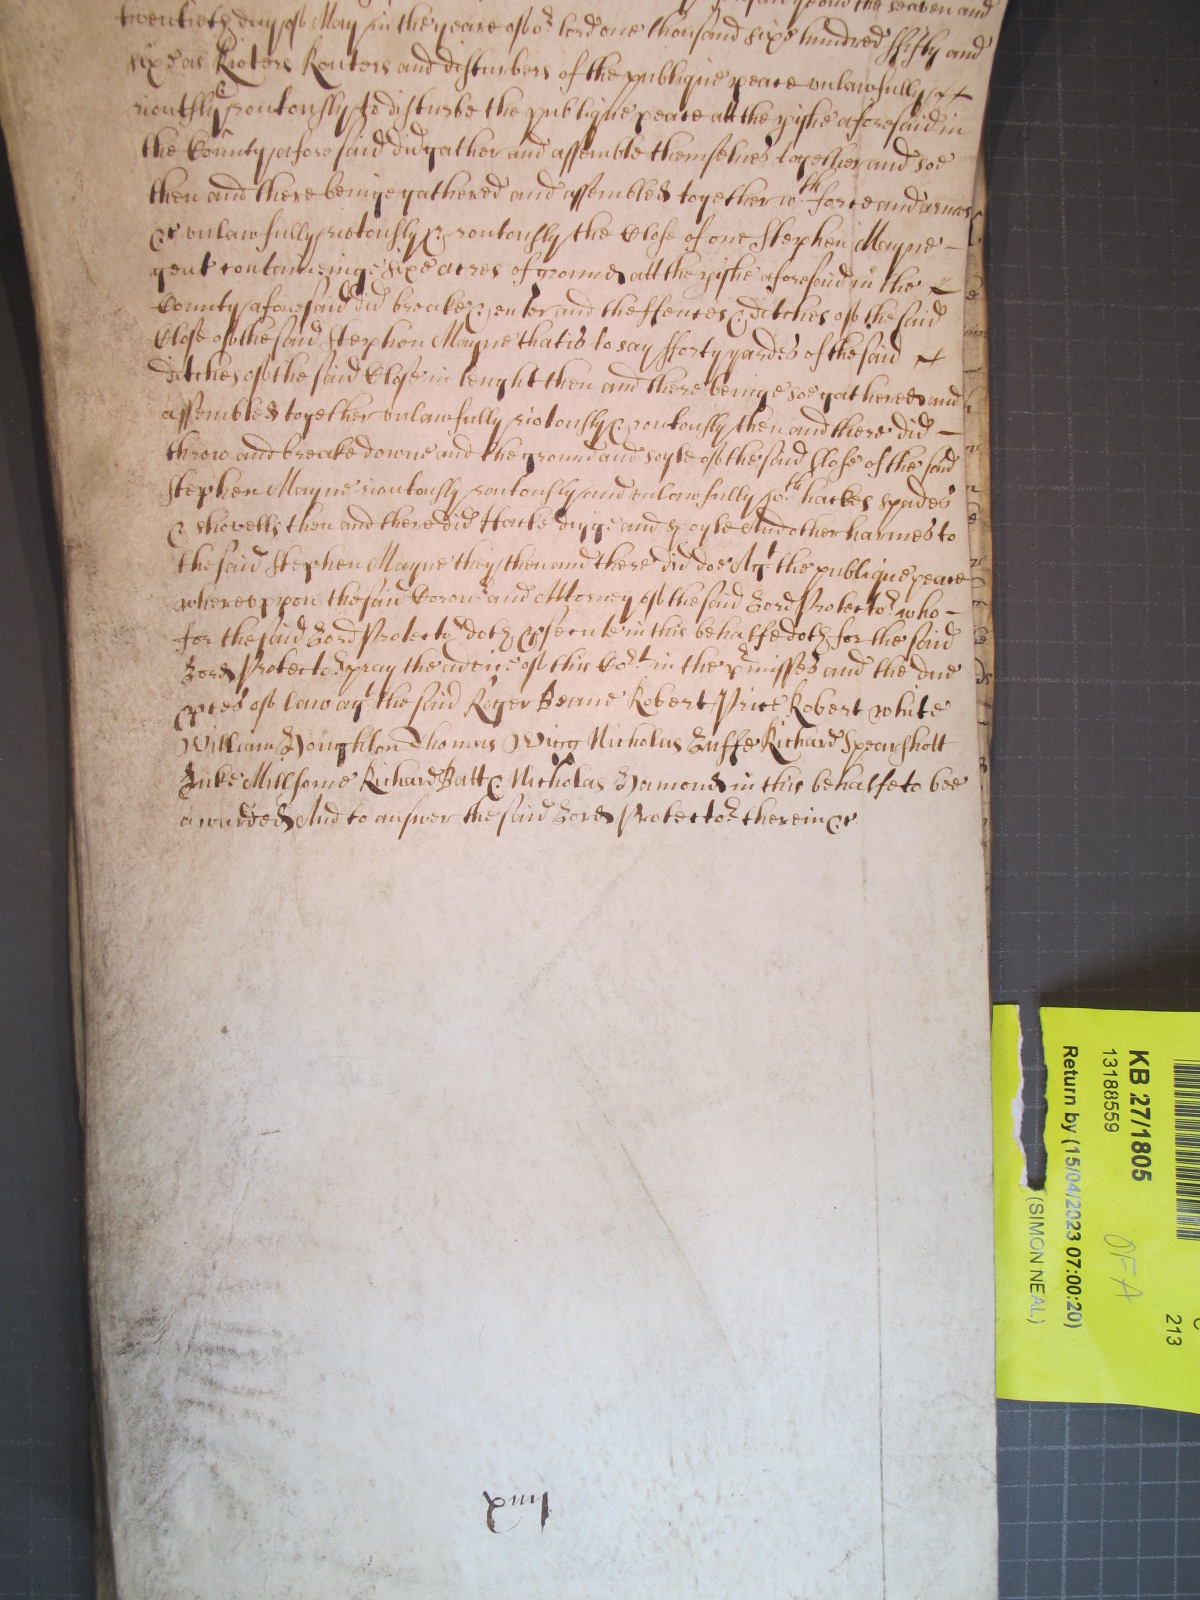 the seaven and
twentieth day of May in the yeare of or lord one thousand sixe hundred fifty and
sixe as Rioters Routers and disturbers of the publique peace unlawfully
riotously routously & to disturbe the publique peace att the pishe aforesaid in
the County aforesaid did gather and assemble themselves together and soe
then and there beinge gathered and assembled together wth force and armes
&c unlawfully riotously & routously the Close of one Stephen Mayne
gent conteineinge sixe acres of ground att the pishe aforesaid in the
County aforesaid did breake & enter and the ffences & ditches of the said
Close of the said Stephen Mayne that is to say fforty yardes of the said
ditches of the said Close in lenght then and there beinge soe gathered and
assembled together unlawfully riotously & routously then and there did
throw and breake downe and the ground and soyle of the said Close of the said
Stephen Mayne riotously routously and unlawfully wth hackes spades
& shovells then and there did Hacke digge and spoyle And other harmes to
the said Stephen Mayne they then and there did doe Agt the publique peace
whereuppon the said Coronr and Attorney of the said Lord Protector who
for the said Lord Protector doth psecute in this behalfe doth for the said
Lord Protector pray the advice of this Cort in the pmisses and the due
pces of law agt the said Roger Beane Robert Price Robert White
William Houghton Thomas Wigg Nicholas Luffe Richard Spearshott
Luke Millsome Richard Batt & Nicholas Hamond in this behalfe to bee
awarded And to answer the said Lord Protector therein &c
KB 27/1805
13188559
Return by (15/04/2023 07:00:20)
(SIMON NEAL)
OFA
213